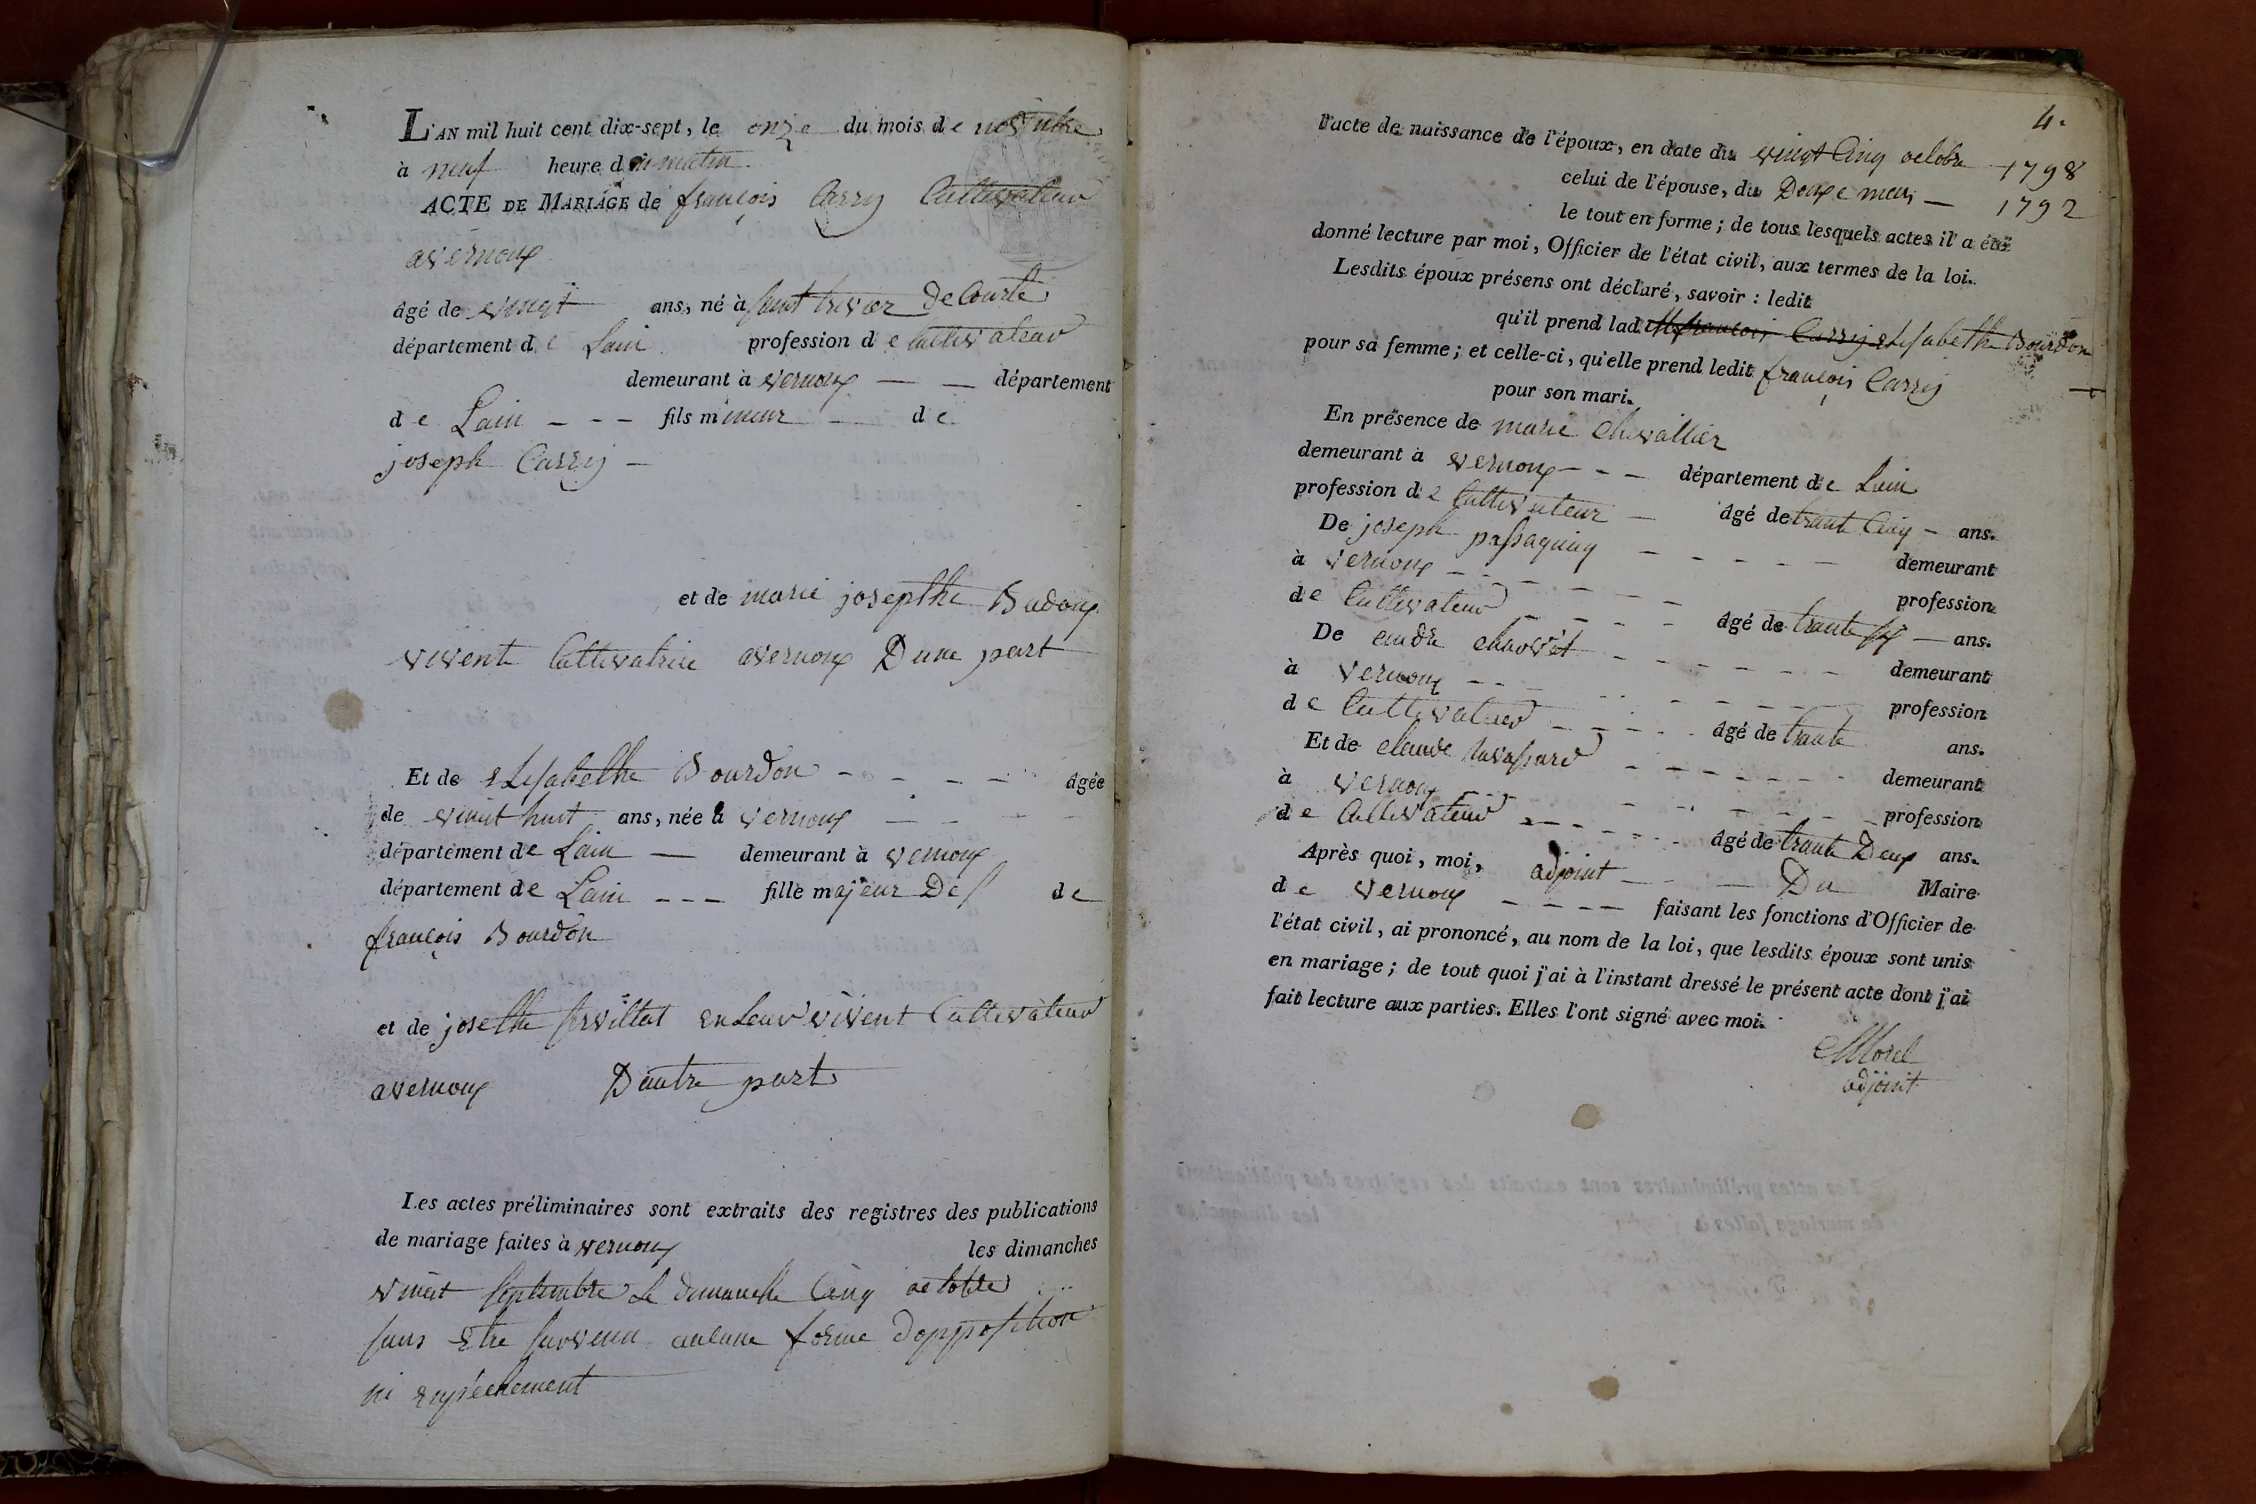 L'AN mil huit cent dix-sept, le onze du mois de novembre
à neuf heure du matin
ACTE DE MARIAGE de françois Carry Cultivateur
avernoux
âgé de vingt ans, né à saint trivier De Courte
département de Lain profession de Cultivateur
demeurant à vernoux — — département
de Lain - - - fils mineur — de
joseph Carry —
et de marie josepthe Badoux
vivent Cultivatrice avernoux Dune part
Et de Elisabethe Bourdon - - - - - âgée
de vinit huit ans, née à vernoux — — — —
département de Lain — demeurant à vernoux
département de Lain - - - fille majeur De de
françois Bourdon
et de josethe en Leur vivent Cultivateur
avernoux Dautre part
Les actes préliminaires sont extraits des registres des publications
de mariage faites à vernoux les dimanches
vinit septembre Le dimanche Cinq octobre
sans Etre survenu aucune forme Dopposition
ni Empéchement
4.
l'acte de naissance de l'époux, en date du vingt Cinq octobre 1798
celui de l'épouse, du Douze mars — 1792
le tout en forme ; de tous lesquels actes il a été
donné lecture par moi, Officier de l'état civil, aux termes de la loi.
Lesdits époux présens ont déclaré, savoir : ledit
qu'il prend lad. françois Carry Elisabethe Bourdon
pour sa femme ; et celle-ci, qu'elle prend ledit françois Carry —
pour son mari.
En présence de marie Chevallier
demeurant à vernoux - - - département de Lain
profession de Cultivateur — âgé de trante Cinq — ans.
De joseph passaquay - - - - - demeurant
à vernoux - - - - - - profession
de Cultivateur - - - - âgé de trante six — ans.
De andre chavet - - - - - - - demeurant
à vernoux - - - - - - - profession
de Cultivateur - - - - - âgé de trante ans.
Et de claude - - - - - - - demeurant
à vernoux - - - - - - - profession
de Cultivateur - - - - - - âgé de trante Deux ans.
Après quoi, moi, adjoint — — Du Maire
de vernoux - - - - faisant les fonctions d'Officier de
l'état civil, ai prononcé, au nom de la loi, que lesdits époux sont unis
en mariage ; de tout quoi j'ai à l'instant dressé le présent acte dont j'ai
fait lecture aux parties. Elles l'ont signé avec moi.
Morel
adjoint